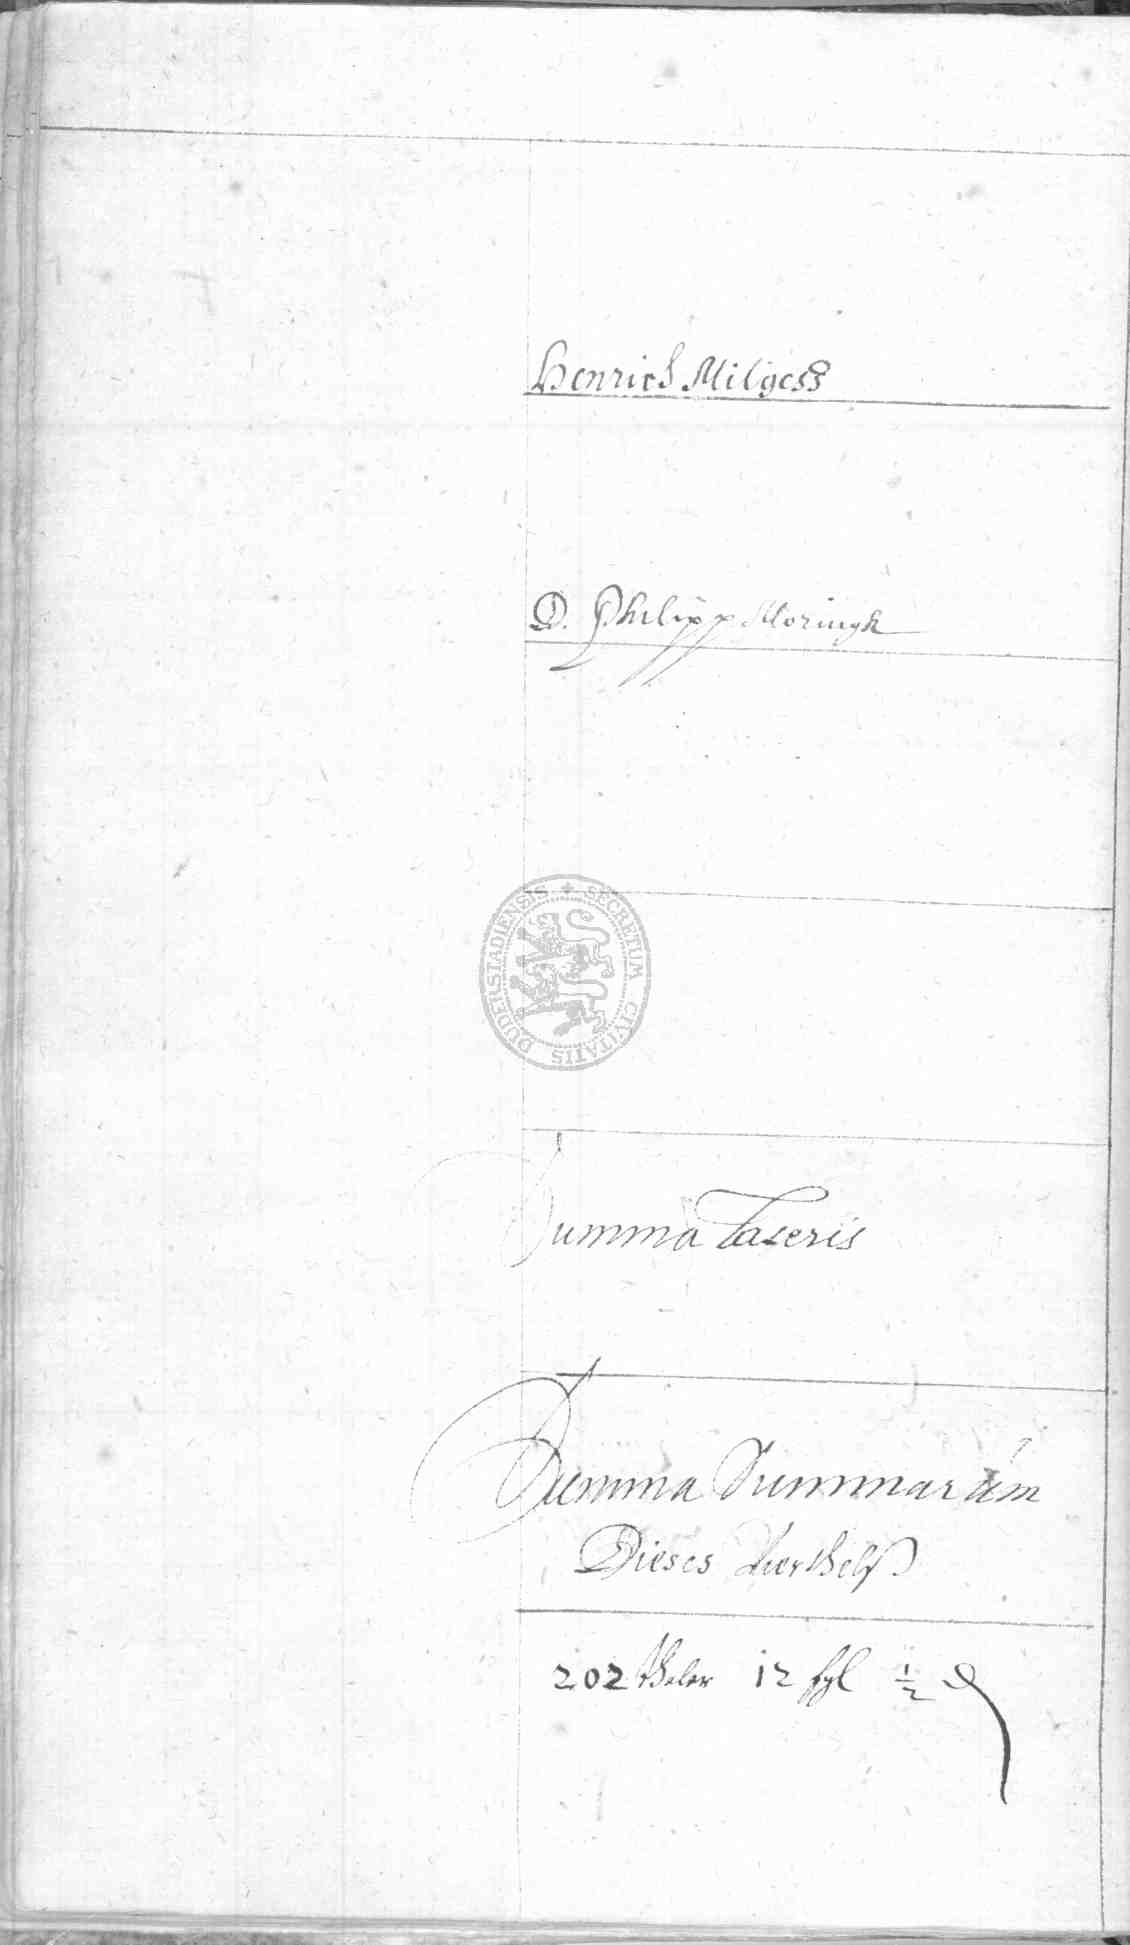 Henrich Milgess
D. Philipp Moringk
SECRETUM CIVITATIS DUDERSTADIENSIS
Summa Lateris
Summa Summarum
Dieses Vierthelß
202 thaler 12 ßgl ½ ₰